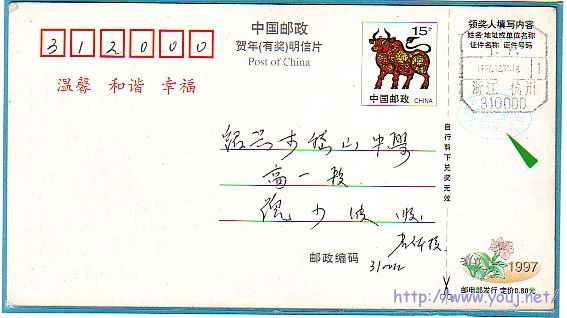 中国邮政
贺年(有奖)明信片
Post of China
312000
温馨 和谐 幸福
15分
中国邮政 CHINA
领奖人填写内容
姓名·地址或单位名称
证件名称 证件号码
浙江 杭州
310000
1
自行剪下兑奖无效
绍兴市 山中学
高一段
少波 收
邮政编码
1997
邮电部发行 定价0.60元
http://www.youj.net/